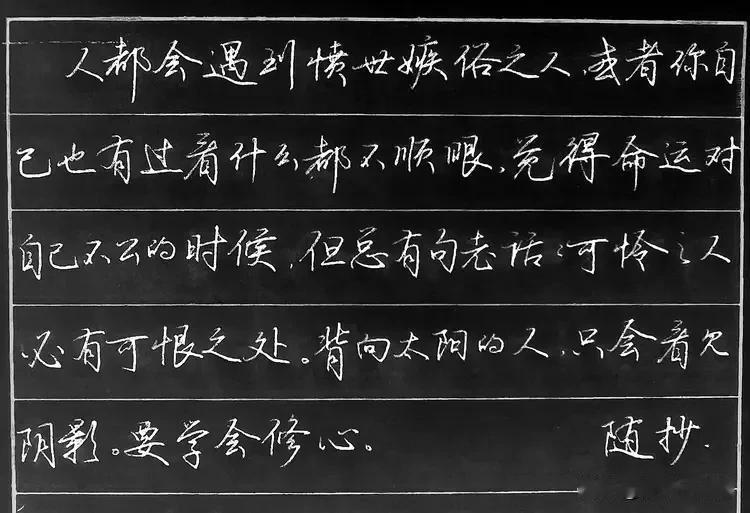 人都会遇到愤世嫉俗之人,或者你自
己也有过看什么都不顺眼,觉得命运对
自己不公的时候,但总有句老话:可怜之人
必有可恨之处。背向太阳的人,只会看见
阴影。要学会修心。 随抄.